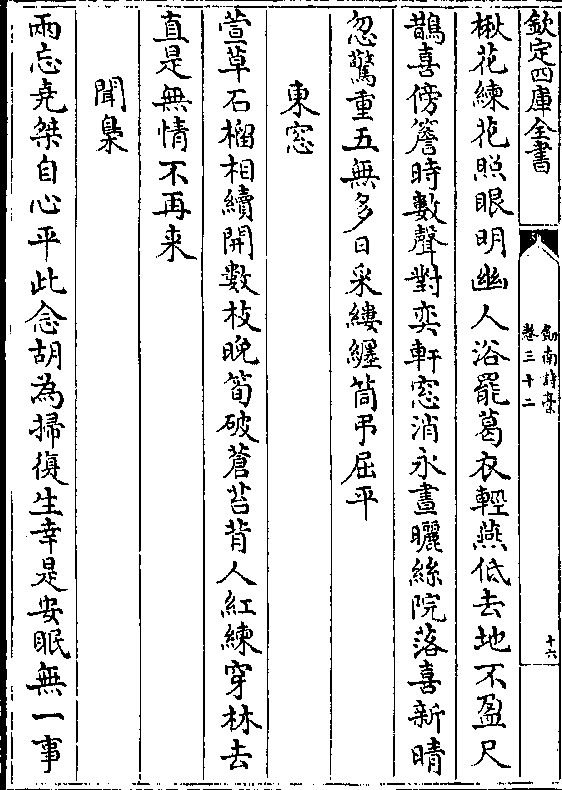 欽定四庫全書
劒南詩藁
卷三十二
十六
楸花練花照眼明幽人浴罷葛衣輕燕低去地不盈尺
鵲喜傍簷時數聲對奕軒窓消永晝曬絲院落喜新晴
忽驚重五無多日采縷纒筒弔屈平
東窓
萱草石榴相續開數枝晚筍破蒼苔背人紅練穿林去
直是無情不再来
聞梟
兩忘堯桀自心平此念胡為掃復生幸是安眠無一事